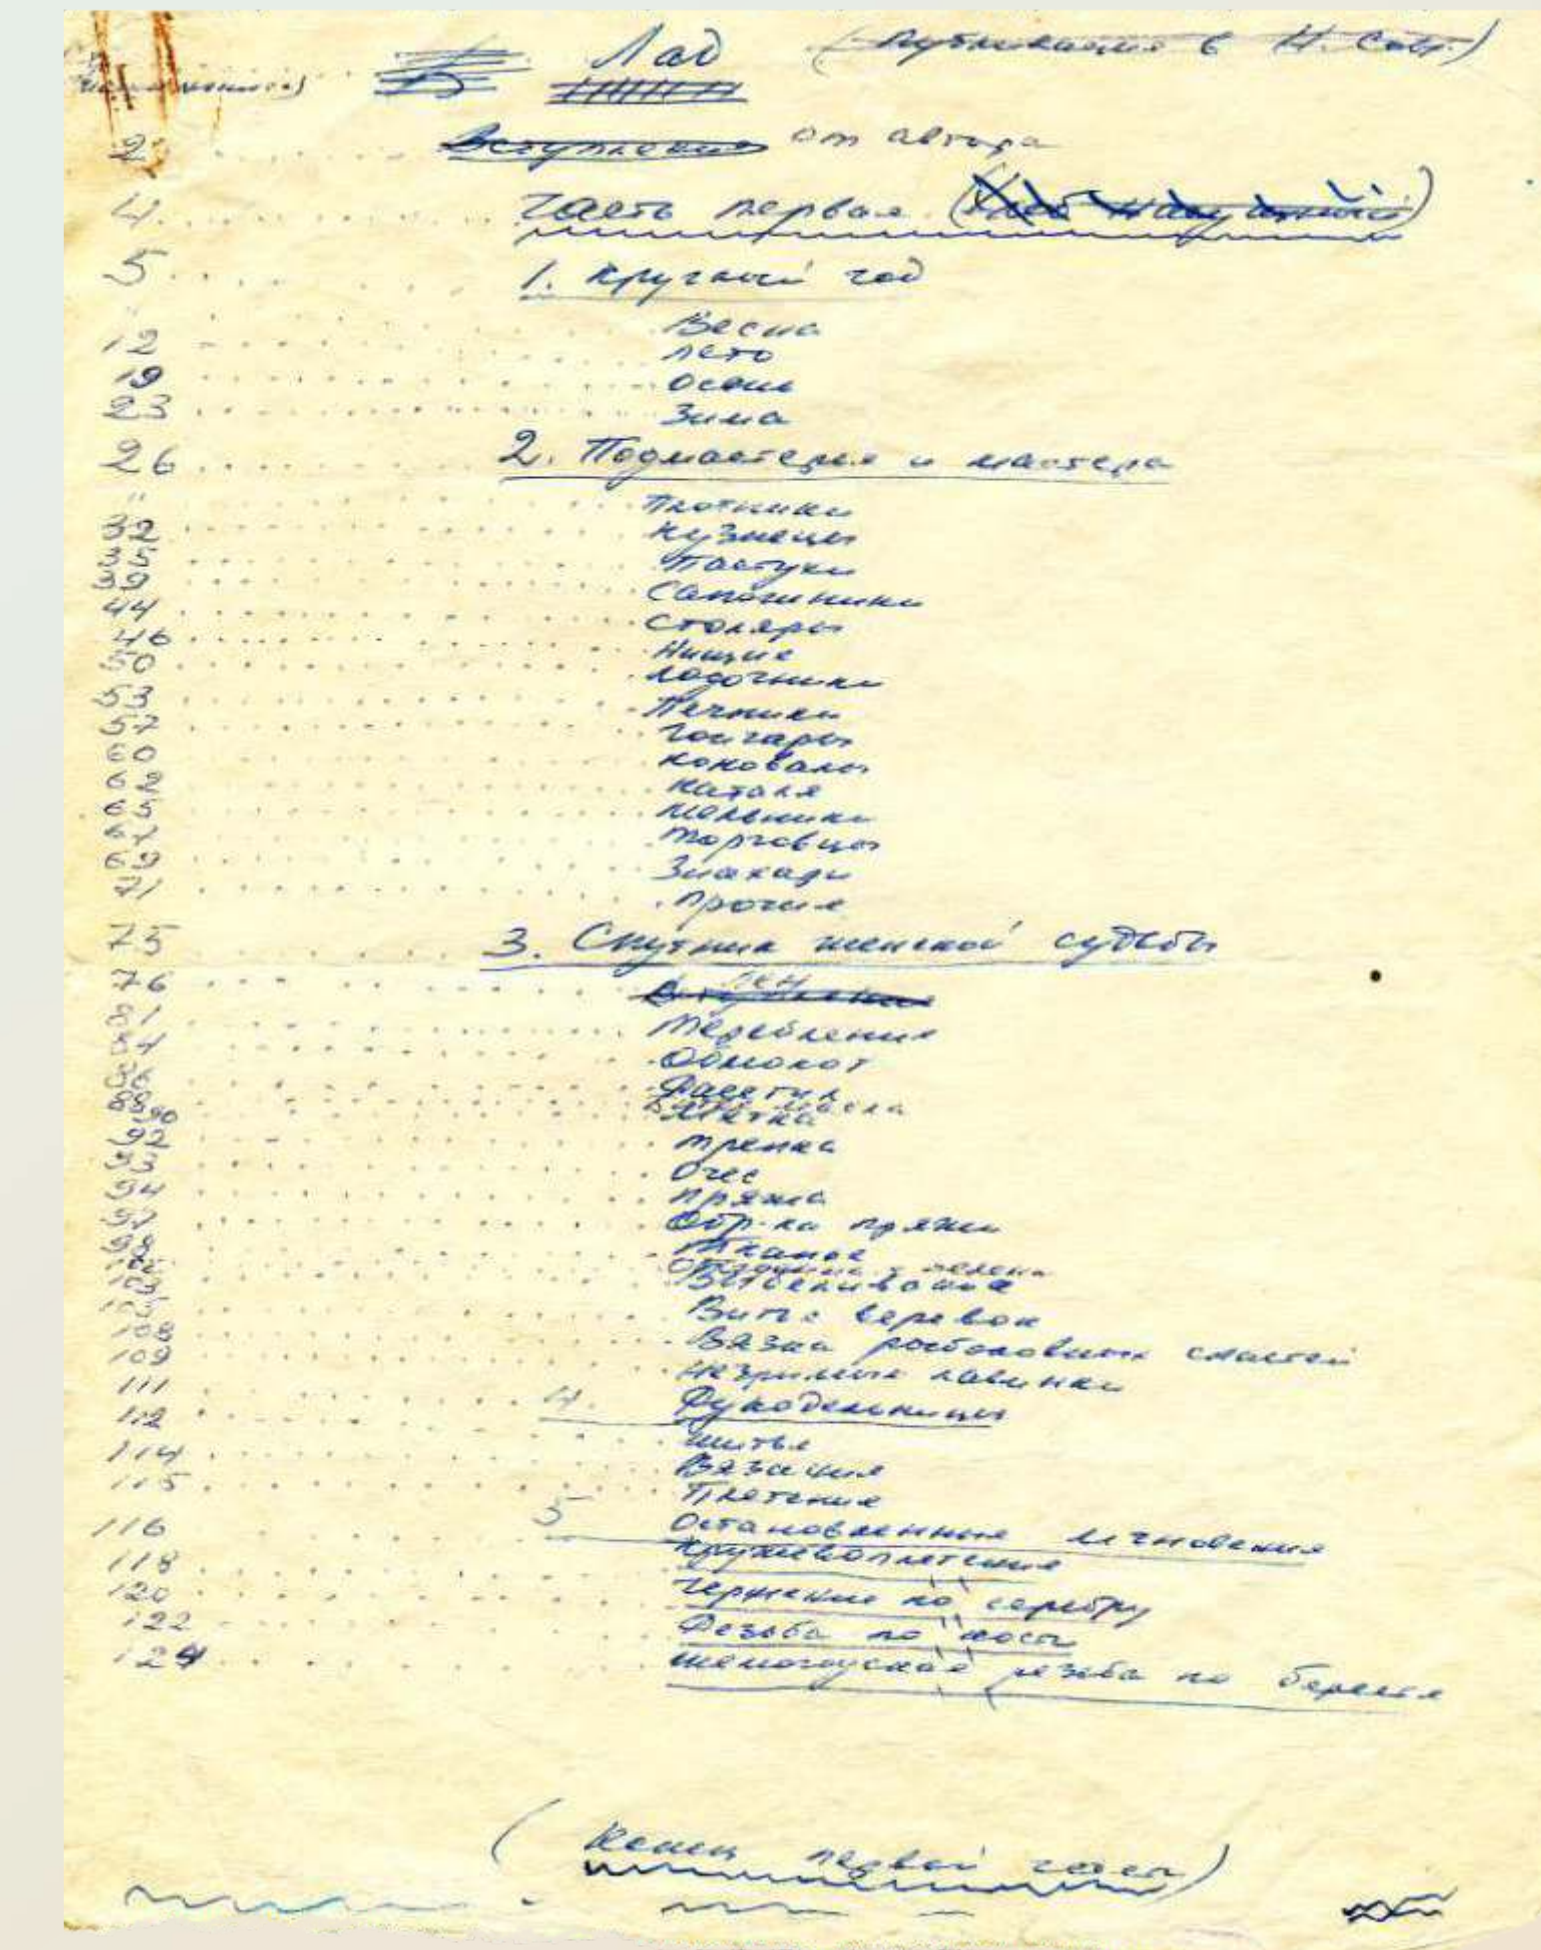 Лад (Публикация в Н. Совр.)
2 ~~Вступление~~ От автора
4 Часть первая
5 1. Круглый год
" Весна
12 Лето
19 Осень
23 Зима
26 2. Подмастерья и мастера
" Плотники
32 Кузнецы
35 Пастухи
39 Сапожники
44 Столяры
46 Нищие
50 Лодочники
53 Печники
57 Гончары
60 Коновалы
62 Катали
65 Мельники
67 Торговцы
69 Знахари
71 Прочие
75 3. Спутник женской судьбы
76 Лен
81 Теребление
84 Обмолот
Расстил
масла
Мятка
90 Трепка
92 Очес
Пряжа
94 Обр-ка пряжи
97 Тканьё
Отбеливание
Витье веревок
Вязка рыболовных снастей
109 Незримые лавинки
111 4. Рукодельницы
112 Шитье
114 Вязание
115 Плетение
116 5 Остановленные мгновения
118 Кружевоплетение
120 Чернение по серебру
122 Резьба по кости
124 Шемогодская резьба по бересте
(Конец первой части)